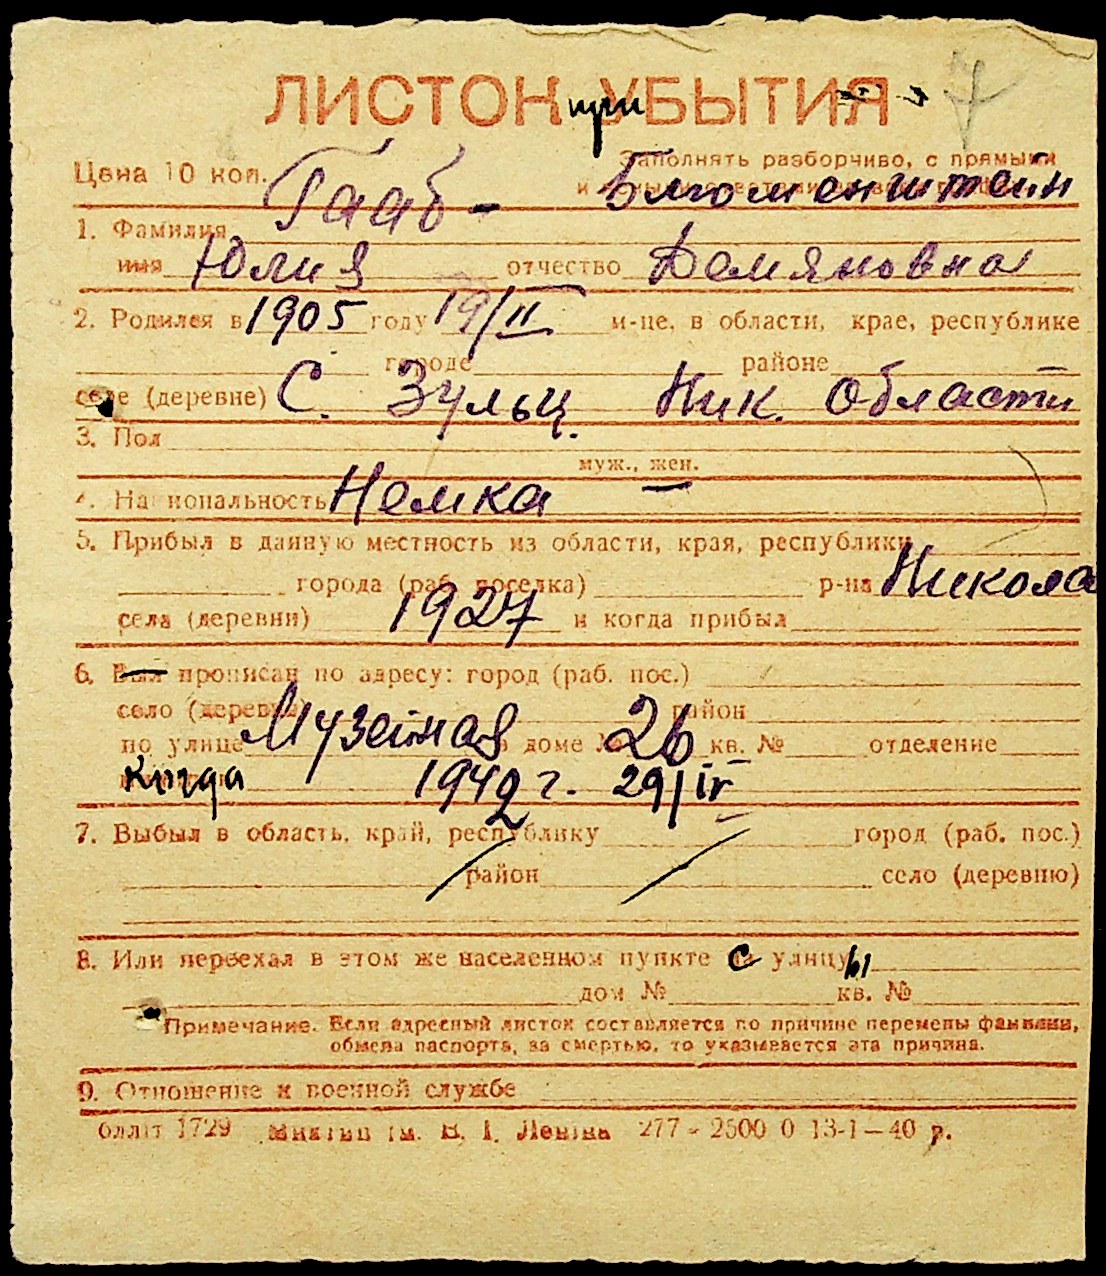 ЛИСТОК при УБЫТИЯ
Цена 10 коп. Заполнять разборчиво, с прямыми
Гааб - Блюменштейн
1. Фамилия
имя Юлия отчество Демяновна
2. Родился в 1905 году 19/II м-це, в области, крае, республике
городе районе
селе (деревне) С. Зульц. Ник. Области
3. Пол
муж., жен.
4. Национальность Немка
5. Прибыл в данную местность из области, края, республики
города (раб. поселка) р-на Никола
села (деревни) 1927 и когда прибыл
6. Был прописан по адресу: город (раб. пос.)
село (деревня) район
по улице Музейная в доме № 26 кв. № отделение
Когда 1942 г. 29/IV
7. Выбыл в область, край, республику город (раб. пос.)
район село (деревню)
8. Или переехал в этом же населенном пункте с улицы
дом № кв. №
Примечание. Если адресный листок составляется по причине перемены фамилии,
обмена паспорта, за смертью, то указывается эта причина.
9. Отношение к военной службе
1729 им. В. І. Леніна 277 - 2500 0 13-1-40 р.